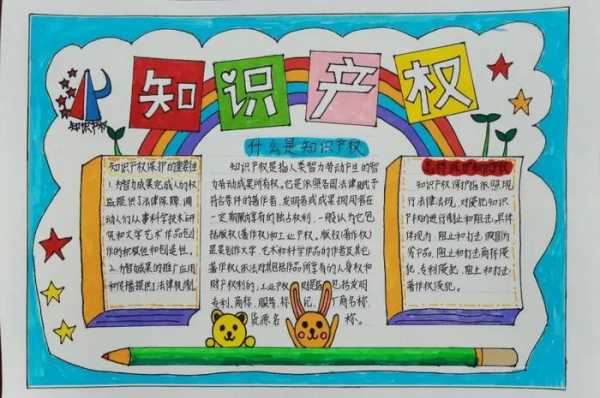 知识产权
知识产权
什么是知识产权
知识产权保护的重要性
1.为智力成果完成人的权
益提供了法律保障,调
动人们从事科学技术研
究和文学艺术作品创
作的积极性和创造性。
2.为智力成果的推广应用
和传播提供了法律机制
知识产权是指人类智力劳动产生的智
力劳动成果所有权。它是依照各国法律赋予
符合条件的著作者、发明者或成果拥有者在
一定期限内享有的独占权利,一般认为它包
括版权(著作权)和工业产权。版权(著作权)
是指创作文学、艺术和科学作品的作者及其他
著作权人依法对其作品所享有的人身权和
财产权利的,工业产权则是指包括发明
专利、商标、服务标记、厂商名称、
货源名称。
知识产权保护指依照现
行法律法规,对侵犯知识
产权的进行制止和打击,具体
体现为:阻止和打击假冒伪
劣产品,阻止和打击商标侵
犯、专利侵犯,阻止和打击
著作权侵犯。